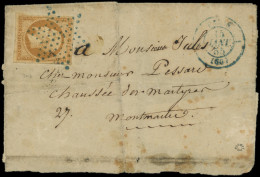 a Monsieur Jules
chez monsieur Pessard
chaussée des martyrs
27.
Montmartre
(60)